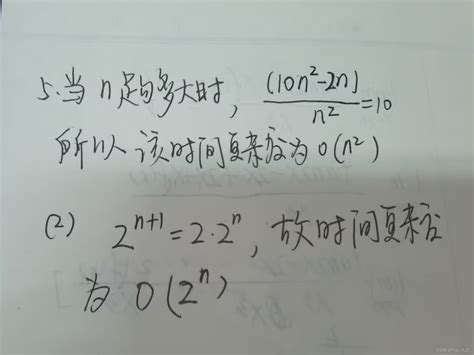 5.当n足够多大时，(10n²-2n)/n²=10
所以该时间复杂度为O(n²)
(2) 2ⁿ⁺¹=2·2ⁿ，故时间复杂度
为O(2ⁿ)